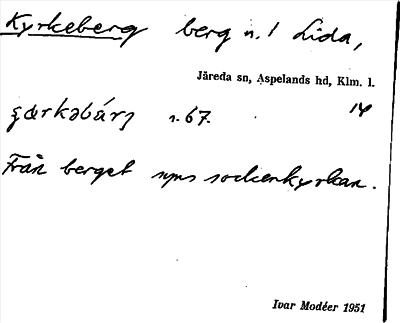 Kyrkeberg berg n. / Lida,
Järeda sn, Aspelands hd, Klm. l.
14
s. 67.
Från berget syns sockenkyrkan.
Ivar Modéer 1951